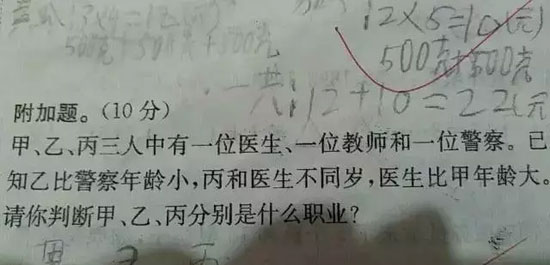 12×5=10(元)
500克+500克
一共:12+10=22(元
附加题。(10分)
甲、乙、丙三人中有一位医生、一位教师和一位警察。已
知乙比警察年龄小,丙和医生不同岁,医生比甲年龄大。
请你判断甲、乙、丙分别是什么职业?
甲 乙 丙